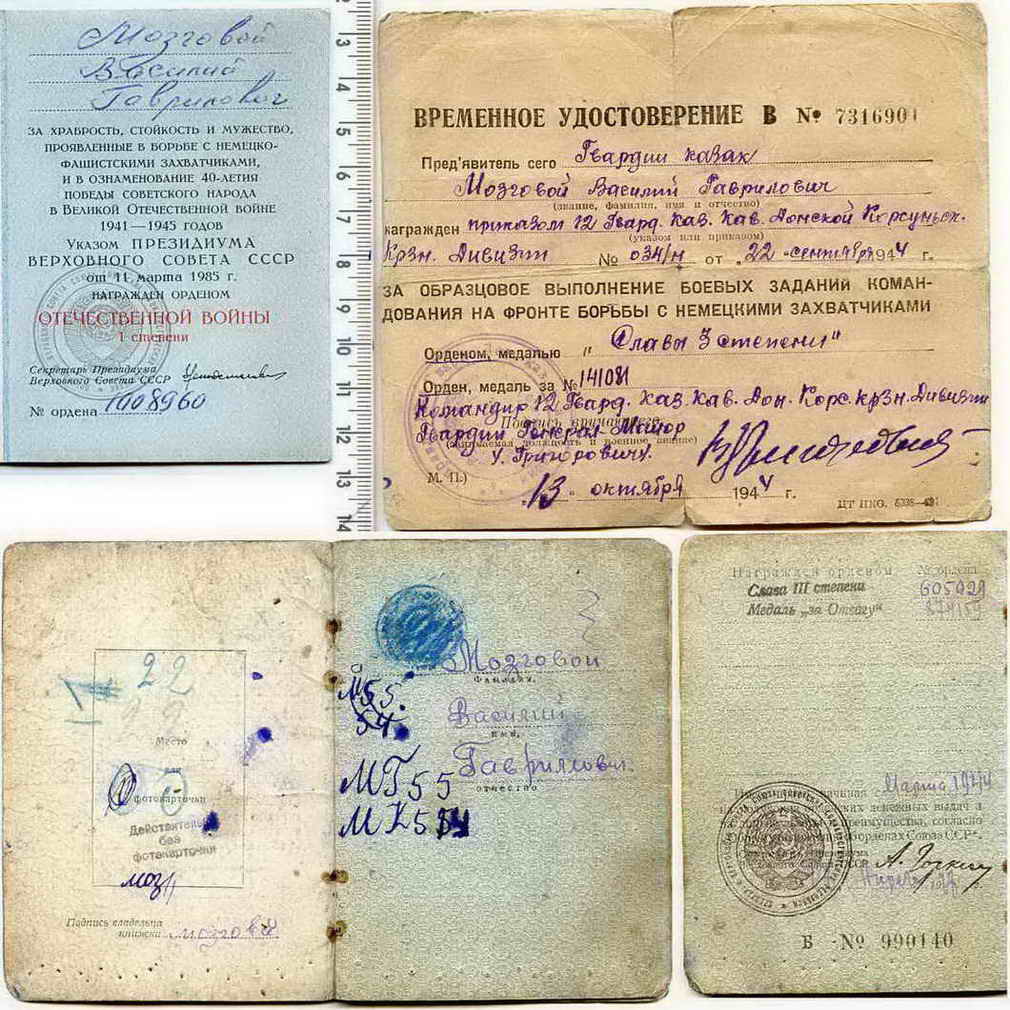 Мозговой
Василий
Гаврилович
ЗА ХРАБРОСТЬ, СТОЙКОСТЬ И МУЖЕСТВО,
ПРОЯВЛЕННЫЕ В БОРЬБЕ С НЕМЕЦКО-
ФАШИСТСКИМИ ЗАХВАТЧИКАМИ,
И В ОЗНАМЕНОВАНИЕ 40-ЛЕТИЯ
ПОБЕДЫ СОВЕТСКОГО НАРОДА
В ВЕЛИКОЙ ОТЕЧЕСТВЕННОЙ ВОЙНЕ
1941—1945 ГОДОВ
УКАЗОМ ПРЕЗИДИУМА
ВЕРХОВНОГО СОВЕТА СССР
от 11 марта 1985 г.
НАГРАЖДЕН ОРДЕНОМ
ОТЕЧЕСТВЕННОЙ ВОЙНЫ
I степени
Секретарь Президиума
Верховного Совета СССР
№ ордена 1008960
3 4 5 6 7 8 9 10 11 12 13 14
ВРЕМЕННОЕ УДОСТОВЕРЕНИЕ В № 7316901
Пред'явитель сего Гвардии казак
Мозговой Василий Гаврилович
(звание, фамилия, имя и отчество)
награжден приказом 12 Гвард. Каз. Кав. Донской Корсуньск.
(указом или приказом)
Крзн. Дивизии № 034/н от „22" сентября 1944 г.
ЗА ОБРАЗЦОВОЕ ВЫПОЛНЕНИЕ БОЕВЫХ ЗАДАНИЙ КОМАН-
ДОВАНИЯ НА ФРОНТЕ БОРЬБЫ С НЕМЕЦКИМИ ЗАХВАТЧИКАМИ
Орденом, медалью „Славы 3 степени"
Орден, медаль за № 141081
Командир 12 Гвард. Каз. Кав. Дон. Корс. крзн. Дивизии
Гвардии Генерал-Майор
(занимаемая должность и военное звание)
/Григорович/.
М. П.)
„13" октября 1944 г.
ЦТ НКО.
22
Место
или
фотокарточки
Действительно
без
фотокарточки
моз
Подпись владельца
книжки мозговй
Мозговой
Фамилия,
М55.
54.
Василий
имя,
Гаврилович.
МГ55
отчество
Награжден орденом № ордена
Слава III степени 605929
Медаль „за Отвагу"
Марта 1944
денежных выдач
преимущества, согласно
орденах Союза ССР".
Б № 990140